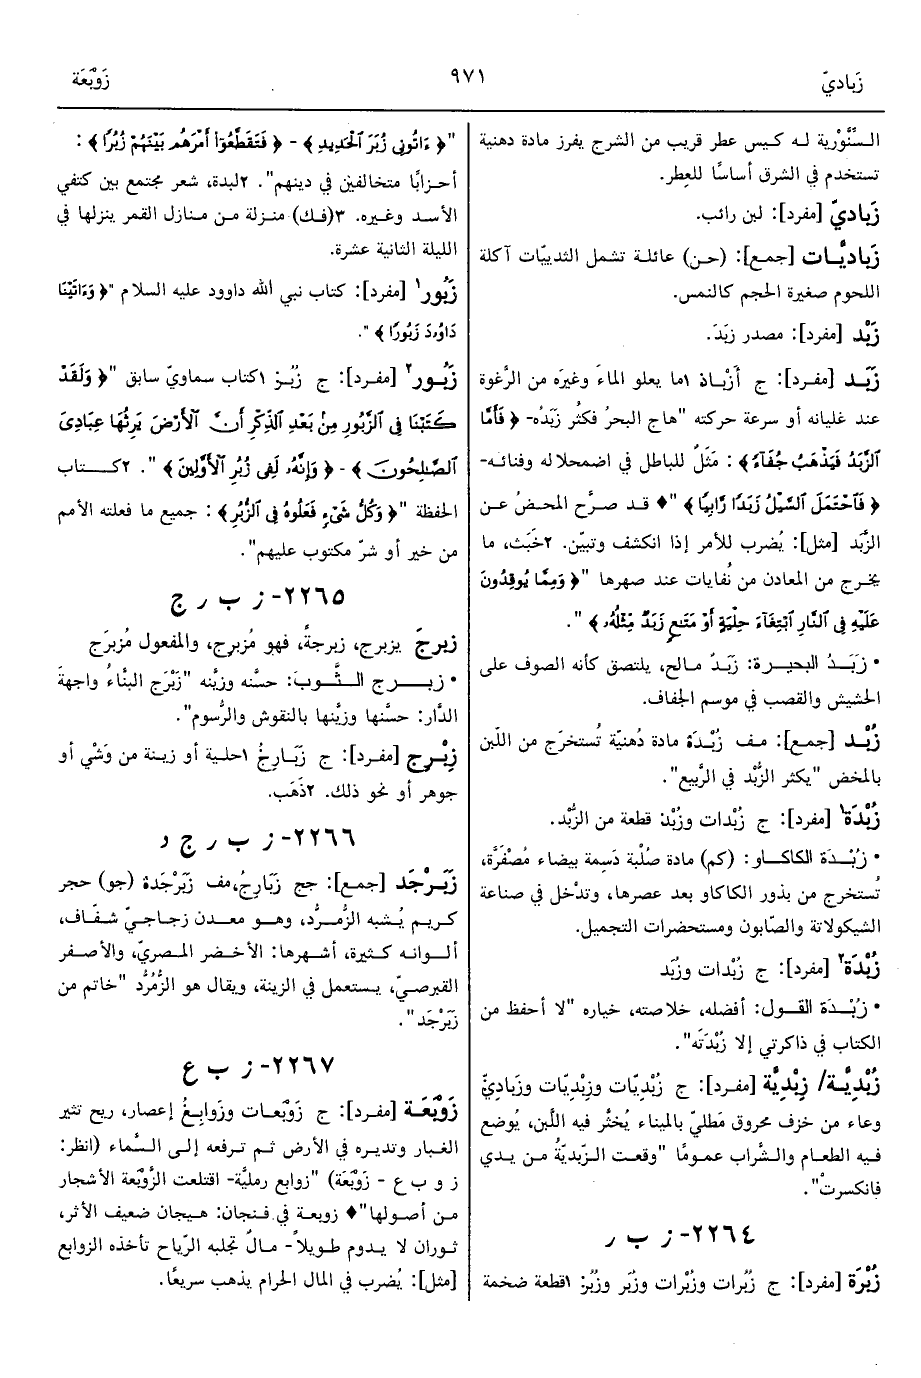 زَباديّ
٩٧١
زَوْبَعَة
السِّنَّوْرية له كيس عطر قريب من الشرج يفرز مادة دهنية
تستخدم في الشرق أساسًا للعِطر.
زَباديّ [مفرد]: لبن رائب.
زَباديَّات [جمع]: (حن) عائلة تشمل الثدييّات آكلة
اللحوم صغيرة الحجم كالنمس.
زَبْد [مفرد]: مصدر زبَدَ.
زَبَد [مفرد]: ج أَزْباد ١ما يعلو الماءَ وغيرَه من الرَّغوة
عند غليانه أو سرعة حركته "هاج البحرُ فكثُر زَبَدُه- ﴿ فَأَمَّا
ٱلزَّبَدُ فَيَذۡهَبُ جُفَآءٗ ﴾ : مَثَلٌ للباطل في اضمحلاله وفنائه-
﴿ فَٱحۡتَمَلَ ٱلسَّيۡلُ زَبَدٗا رَّابِيٗا ﴾ "♦ قد صرَّح المحضُ عن
الزَّبَد [مثل]: يُضرب للأمر إذا انكشف وتبيّن. ٢خَبَث، ما
يخرج من المعادن من نُفايات عند صهرها "﴿ وَمِمَّا يُوقِدُونَ
عَلَيۡهِ فِي ٱلنَّارِ ٱبۡتِغَآءَ حِلۡيَةٍ أَوۡ مَتَٰعٖ زَبَدٞ مِّثۡلُهُۥ ﴾ ".
• زبَدُ البحيرة: زَبَدٌ مالح، يلتصق كأنه الصوف على
الحشيش والقصب في موسم الجفاف.
زُبْد [جمع]: مف زُبْدَة مادة دُهنيّة تُستخرَج من اللّبن
بالمخض "يكثر الزُّبْد في الرَّبيع".
زُبْدَة١ [مفرد]: ج زُبْدات وزُبْد: قطعة من الزُّبْد.
• زُبْدَة الكاكاو: (كم) مادة صُلْبة دَسِمة بيضاء مُصْفَرَّة،
تُستخرج من بذور الكاكاو بعد عصرها، وتدْخل في صناعة
الشيكولاتة والصّابون ومستحضرات التجميل.
زُبْدَة٢ [مفرد]: ج زُبْدات وزُبَد
• زُبْدَة القول: أفضله، خلاصته، خياره "لا أحفظ من
الكتاب في ذاكرتي إلا زُبْدَتَه".
زُبْدِيَّة/ زِبْدِيَّة [مفرد]: ج زُبْدِيّات وزِبْدِيّات وزَباديّ
وعاء من خزف محروق مَطليّ بالميناء يُخثَّر فيه اللّبن، يُوضع
فيه الطعام والشَّراب عمومًا "وقعت الزبديّةُ من يدي
فانكسرتْ".
٢٢٦٤- ز ب ر
زُبْرَة [مفرد]: ج زُبُرات وزُبْرات وزُبَر وزُبُر: ١قطعة ضخمة
"﴿ ءَاتُونِي زُبَرَ ٱلۡحَدِيدِ ﴾ - ﴿ فَتَقَطَّعُوٓاْ أَمۡرَهُم بَيۡنَهُمۡ زُبُرٗا ﴾ :
أحزابًا متخالفين في دينهم". ٢لبدة، شعر مجتمع بين كتفي
الأسد وغيره. ٣(فك) منزلة من منازل القمر ينزلها في
الليلة الثانية عشرة.
زَبُور١ [مفرد]: كتاب نبي الله داوود عليه السلام "﴿ وَءَاتَيۡنَا
دَاوُۥدَ زَبُورٗا ﴾ ".
زَبُور٢ [مفرد]: ج زُبُر: ١كتاب سماويّ سابق "﴿ وَلَقَدۡ
كَتَبۡنَا فِي ٱلزَّبُورِ مِنۢ بَعۡدِ ٱلذِّكۡرِ أَنَّ ٱلۡأَرۡضَ يَرِثُهَا عِبَادِيَ
ٱلصَّٰلِحُونَ ﴾ - ﴿ وَإِنَّهُۥ لَفِي زُبُرِ ٱلۡأَوَّلِينَ ﴾ ". ٢كتاب
الحفظة "﴿ وَكُلُّ شَيۡءٖ فَعَلُوهُ فِي ٱلزُّبُرِ ﴾ : جميع ما فعلته الأمم
من خير أو شرّ مكتوب عليهم".
٢٢٦٥- ز ب ر ج
زبرجَ يزبرج، زبرجةً، فهو مُزبرِج، والمفعول مُزبرَج
• زبرج الثَّوبَ: حسَّنه وزيَّنه "زَبْرَج البنّاءُ واجهةَ
الدَّار: حسَّنها وزيَّنها بالنقوش والرُّسوم".
زِبْرِج [مفرد]: ج زَبَارِجُ: ١حلية أو زينة من وَشْي أو
جوهر أو نحو ذلك. ٢ذَهَب.
٢٢٦٦- ز ب ر ج د
زَبَرْجَد [جمع]: جج زَبَارِجُ، مف زَبَرْجَدَة: (جو) حجر
كريم يُشبه الزُّمرُّد، وهو معدن زجاجيّ شفّاف،
ألوانه كثيرة، أشهرها: الأخضر المصريّ، والأصفر
القبرصيّ، يستعمل في الزينة، ويقال هو الزُّمُرُّد "خاتم من
زَبَرْجَد".
٢٢٦٧- ز ب ع
زَوْبَعَة [مفرد]: ج زَوْبَعات وزَوابِعُ: إعصار، ريح تثير
الغبار وتديره في الأرض ثم ترفعه إلى السَّماء (انظر:
ز و ب ع - زَوْبَعَة) "زوابع رمليَّة- اقتلعت الزَّوْبَعة الأشجار
من أصولها"♦ زوبعة في فنجان: هيجان ضعيف الأثر،
ثوران لا يدوم طويلاً- مالٌ تجلبه الرِّياح تأخذه الزوابع
[مثل]: يُضرب في المال الحرام يذهب سريعًا.